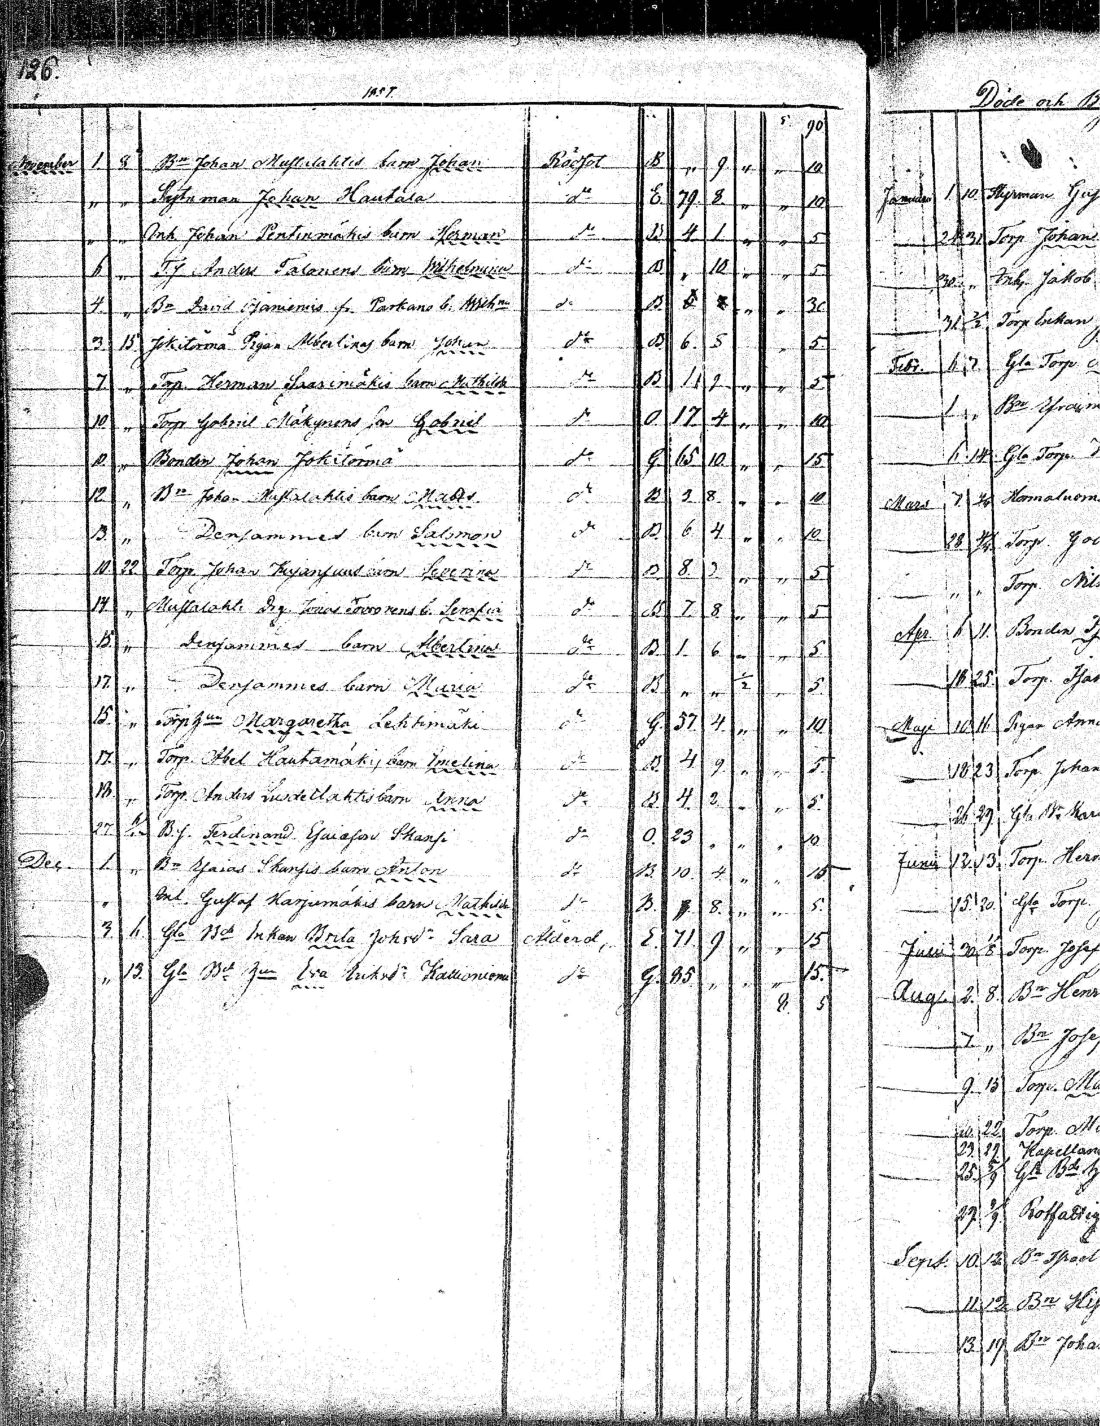 126.
1857.
5 90
November 1. 8. Bn Johan Mustalahtis barn Johan Rödsot B „ 9 „ „ 10
„ „ Sytn.man Johan Hautala do E. 79. 8 „ „ 10
„ „ Inh. Johan Pentinmäkis barn Herman do B 4 1 „ „ 5
6 „ Anders Talonens barn Wilhelmina do B „ 10 „ „ 5
4. „ Bn David fr. Parkano b. do B. 30
3. 15. Jokitörmä Pigan Albertinas barn Johan do B. 6. 5 „ 5
7 „ Torp. Herman Saarimäkis barn Mathilda do B 1 2 „ „ 5
10. „ Torp Gabriel Mäkynens son Gabriel do O. 17 4 „ „ 10
„ Bonden Johan Jokitörmä do G. 65 10. „ „ 15
12 „ Bn Johan Mustalahtis barn Matts do B 3 8. „ „ 10
13. „ Densammes barn Salomon do B 6 4 „ „ 10
10. 22. Torp. Johan barn Severina do B 8. 3 „ „ 5
14. „ Mustalahti Drg. Jonas b. Serafia do B 7 8. „ „ 5
15. „ Densammes barn Albertina do B. 1. 6 „ „ 5
17. „ Densammes barn Maria do B „ „ ½ „ 5
15. „ Torp.hun Margaretha Lehtimäki do G. 57 4. „ „ 10
17. „ Torp. Abel Hautamäkis barn Emelina do B 4 9. „ „ 5
18. „ Torp. Anders barn Anna do B 4. 2 „ „ 5
27. B.s. Ferdinand Esaiasson Skansi do O. 23 „ „ „ 10
Dec. 1. „ Bn Esaias Skansis barn Anton do B. 10. 4 „ „ 15
„ Inh. Gustaf Harjumäkis barn Mathilda do B. 8. „ „ 5
3. 6. Gla Bd Enkan Brita Johsdr Sara Ålderd. E. 71 9 „ „ 15
„ 13. Gla Bd hun Eva Eriksdr Kallioniemi do G. 85 „ „ „ 15
8. 5
Döde och B
Januari 1. 10. Styrman Gus
24 31 Torp Johans
30. „ Inh. Jakob
31. Torp Enkan
Febr. 6. 7. Gla Torp
1 „ Bn Efraim
6. 14. Gla Torp.
Mars 7
28 Torp.
„ „ Torp. Nils
Apr. 6 11. Bonden
18 25 Torp. Isak
Maji 10. 16. Pigan Anna
18 23 Torp. Johan
26 29. Gla
Juni 12. 13. Torp. Herm
15. 20. Gla Torp.
Juli 30. Torp. Josef
Aug. 2. 8. Bn Henr
7. „ Bn Josef
9. 15 Torp. Ma
22. Torp. Ma
23. 29 Kapellan
25. Gla Bd
29. Rotfattig
Sept. 10. 12. Bn Israel
11. 12. Bn
13. 19 Bn Joha